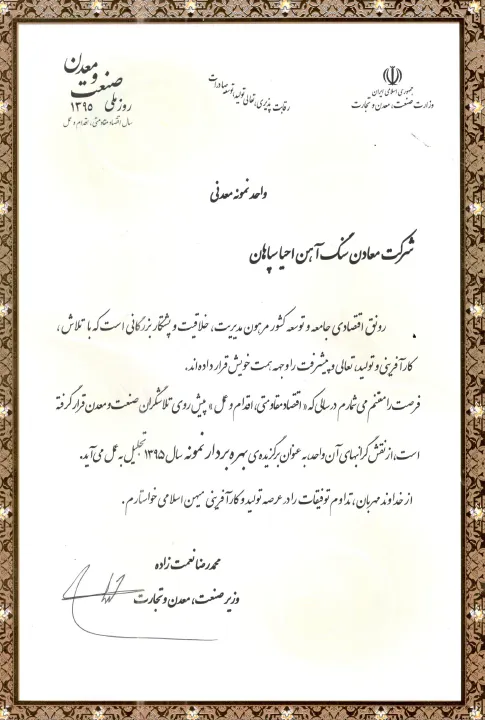 جمهوری اسلامی ایران
وزارت صنعت، معدن و تجارت
رقابت پذیری، تعالی تولید، توسعه صادرات
روز ملی صنعت و معدن
۱۳۹۵
سال اقتصاد مقاومتی، اقدام و عمل
واحد نمونه معدنی
شرکت معادن سنگ آهن احیا سپاهان
رونق اقتصادی جامعه و توسعه کشور مرهون مدیریت، خلاقیت و پشتکار بزرگانی است که با تلاش،
کارآفرینی و تولید، تعالی و پیشرفت را وجهه همت خویش قرار داده‌اند.
فرصت را مغتنم می شمارم در سالی که «اقتصاد مقاومتی، اقدام و عمل» پیش روی تلاشگران صنعت و معدن قرار گرفته
است، از نقش گرانبهای آن واحد، به عنوان برگزیده‌ی بهره بردار نمونه سال ۱۳۹۵ تجلیل به عمل می آید.
از خداوند مهربان، تداوم توفیقات را در عرصه تولید و کارآفرینی میهن اسلامی خواستارم.
محمدرضا نعمت زاده
وزیر صنعت، معدن و تجارت